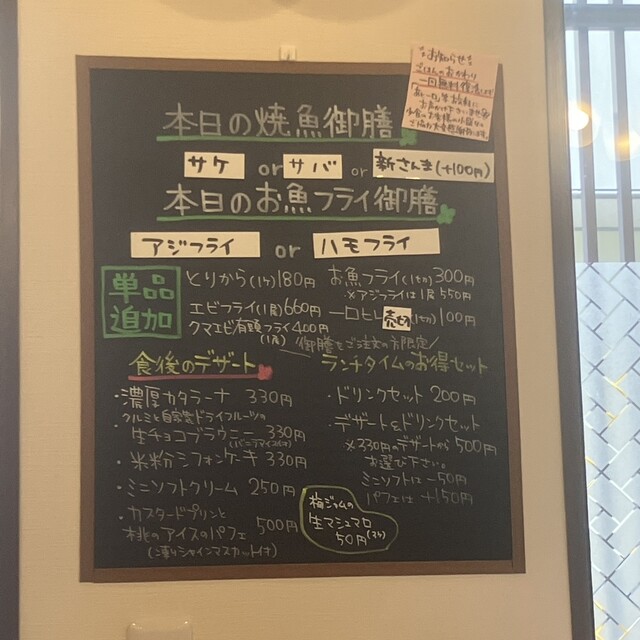 お知らせ
ごはんのおかわり
一回無料
本日の焼魚御膳
サケ or サバ or 新さんま(+100円)
本日のお魚フライ御膳
アジフライ or ハモフライ
単品
追加
とりから(1ケ)180円
エビフライ(1尾)660円
クマエビ有頭フライ400円
(1尾)
お魚フライ(1切)300円
※アジフライは1尾550円
一口ヒレ 売切 (1切)100円
御膳をご注文の方限定
食後のデザート
・濃厚カタラーナ 330円
・クルミと自家製ドライフルーツの
生チョコブラウニー 330円
(バニラアイス付き)
・米粉シフォンケーキ 330円
・ミニソフトクリーム 250円
・カスタードプリンと
桃のアイスのパフェ 500円
(凍りシャインマスカット付)
ランチタイムのお得セット
・ドリンクセット 200円
・デザート&ドリンクセット
500円
※330円のデザートから
お選び下さい。
ミニソフトは-50円
パフェは+150円
梅ジャムの
生マシュマロ
50円